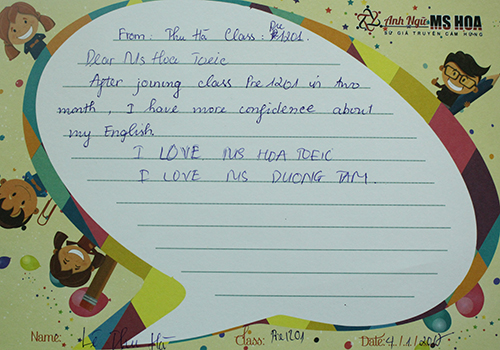 Anh Ngữ MS HOA
SỨ GIẢ TRUYỀN CẢM HỨNG
From: Thu Hà Class: Pre 1201
Dear Ms Hoa Toeic
After joining class Pre 1201 in two
month, I have more confidence about
my English
I LOVE MS HOA TOEIC
I LOVE MS DUONG TAM.
Name: Lê Thu Hà Class: Pre 1201 Date: 4/1/2017